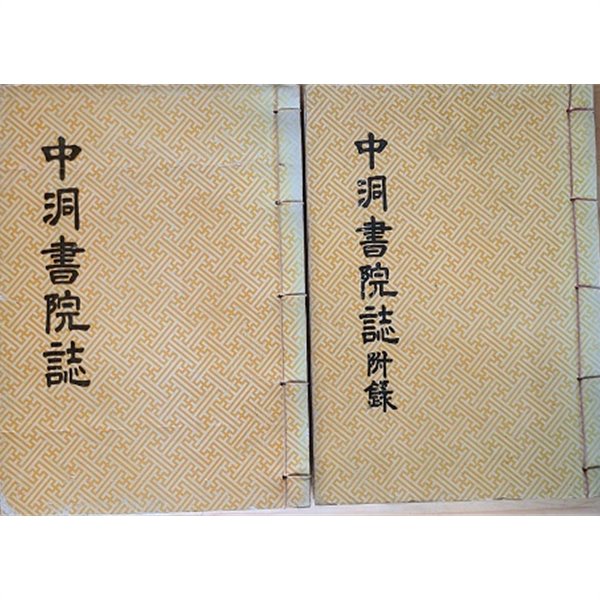 中洞書院誌
中洞書院誌附錄